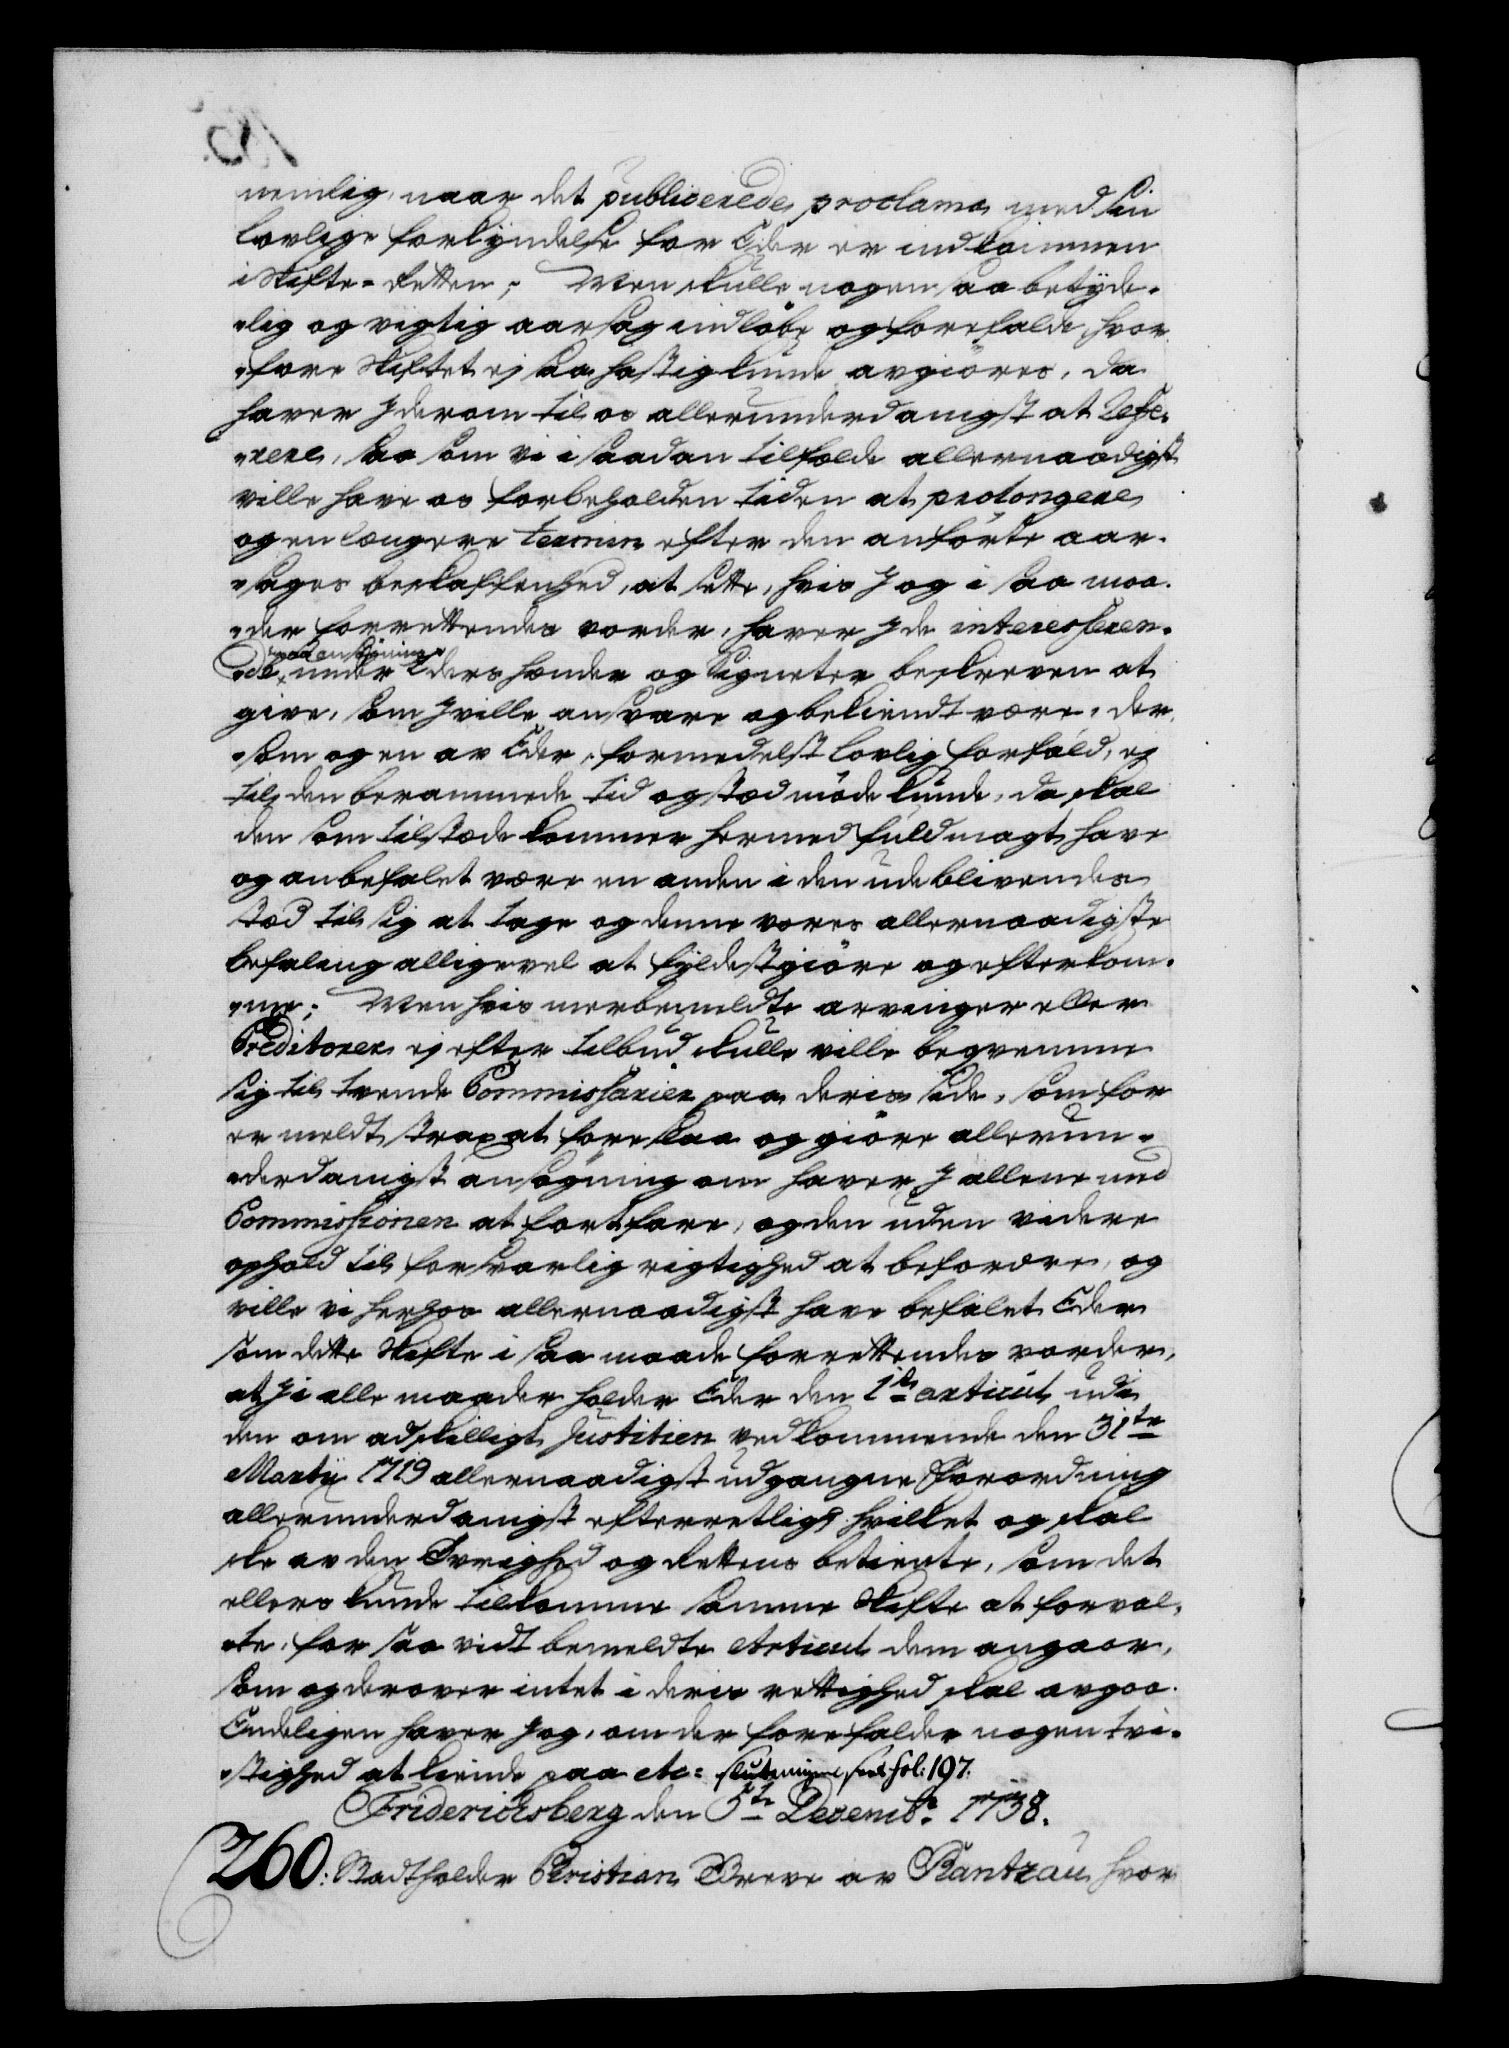 nemlig, naar det publicerede proclama med sin
lovlige forkyndelse for Eder er indkommen
i Skifte-Retten; Men skulle nogen saa betyde-
lig og vigtig aarsag indløbe og forefalde, hvor-
fore Skiftet ej saa hastig kunde avgiøres, da
haver I derom til os allerunderdanigst at Refe-
rere, saa som vi i saadan tilfælde allernaadigst
ville have os forbeholden tiden at prolongere
og en længere termin efter den anførte aar-
sages beskaffenhed, at sætte, hvis I og i saa maa-
der forrettendes vorder, haver I de interesseren-
de, under Eders hænder og Signeter beskreven at
give, som I ville ansvare og bekiendt være, der-
som og en av Eder, formedelst lovlig forfald, ej
til den berammede tid og stæd møde kunde, da skal
den som tilstæde kommer hermed fuldmagt have
og anbefalet være en anden i den udeblivendes
stæd til sig at tage og denne vores allernaadigste
befaling alligevel at fyldestgiøre og efterkom-
me; Men hvis merbemeldte arvinger eller
Creditorer ej efter tilbud skulle ville beqvemme
sig til tvende Commissarier paa deris side, som for
er meldt, strax at foreslaa og giøre allerun-
derdanigst ansøgning om haver I allene med
Commissionen at fortfare, og den uden videre
ophold til forsvarlig rigtighed at befordre, og
ville vi herhos allernaadigst have befalet Eder
som dette Skifte i saa maade forrettendes vorder,
at I i alle maader holder Eder den 1te articul udi
den om adskilligt Justitien vedkommende den 31te
Martij 1719 allernaadigst udgangne Forordning
allerunderdanigst efterretlig, hvilket og skal
ske av den Øvrighed og Rettens betiente, som det
ellers kunde tilkomme samme Skifte at forval-
te, for saa vidt bemeldte Articul dem angaar,
som og derover intet i deris rettighed skal avgaa.
Endeligen haver I og, om der forefalder nogen tvi-
stighed at kiende paa etc: slutningen see fol: 197.
Friderichsberg den 5te Decembr: 1738.
260: Stadtholder Christian Greve av Rantzau, hvor